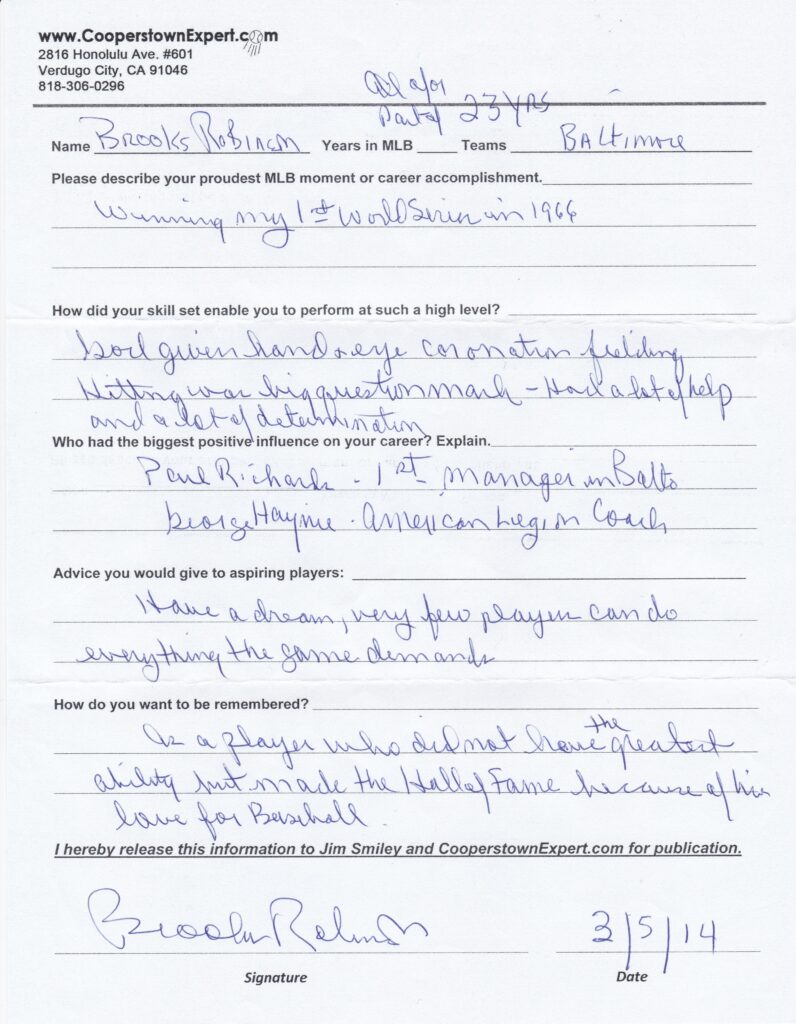 www.CooperstownExpert.com
2816 Honolulu Ave. #601
Verdugo City, CA 91046
818-306-0296
All or
Part of 23 YRS
Name Brooks Robinson Years in MLB Teams Baltimore
Please describe your proudest MLB moment or career accomplishment.
Winning my 1st World Series in 1966
How did your skill set enable you to perform at such a high level?
God given hand & eye coronation fielding
Hitting was big question mark - Had a lot of help
and a lot of determination
Who had the biggest positive influence on your career? Explain.
Paul Richards - 1st manager in Balto
George Haynie - American Legion Coach
Advice you would give to aspiring players:
Have a dream, very few players can do
everything the game demands
How do you want to be remembered?
As a player who did not have the greatest
ability but made the Hall of Fame because of his
love for Baseball.
I hereby release this information to Jim Smiley and CooperstownExpert.com for publication.
Brooks Robinson 3/5/14
Signature Date